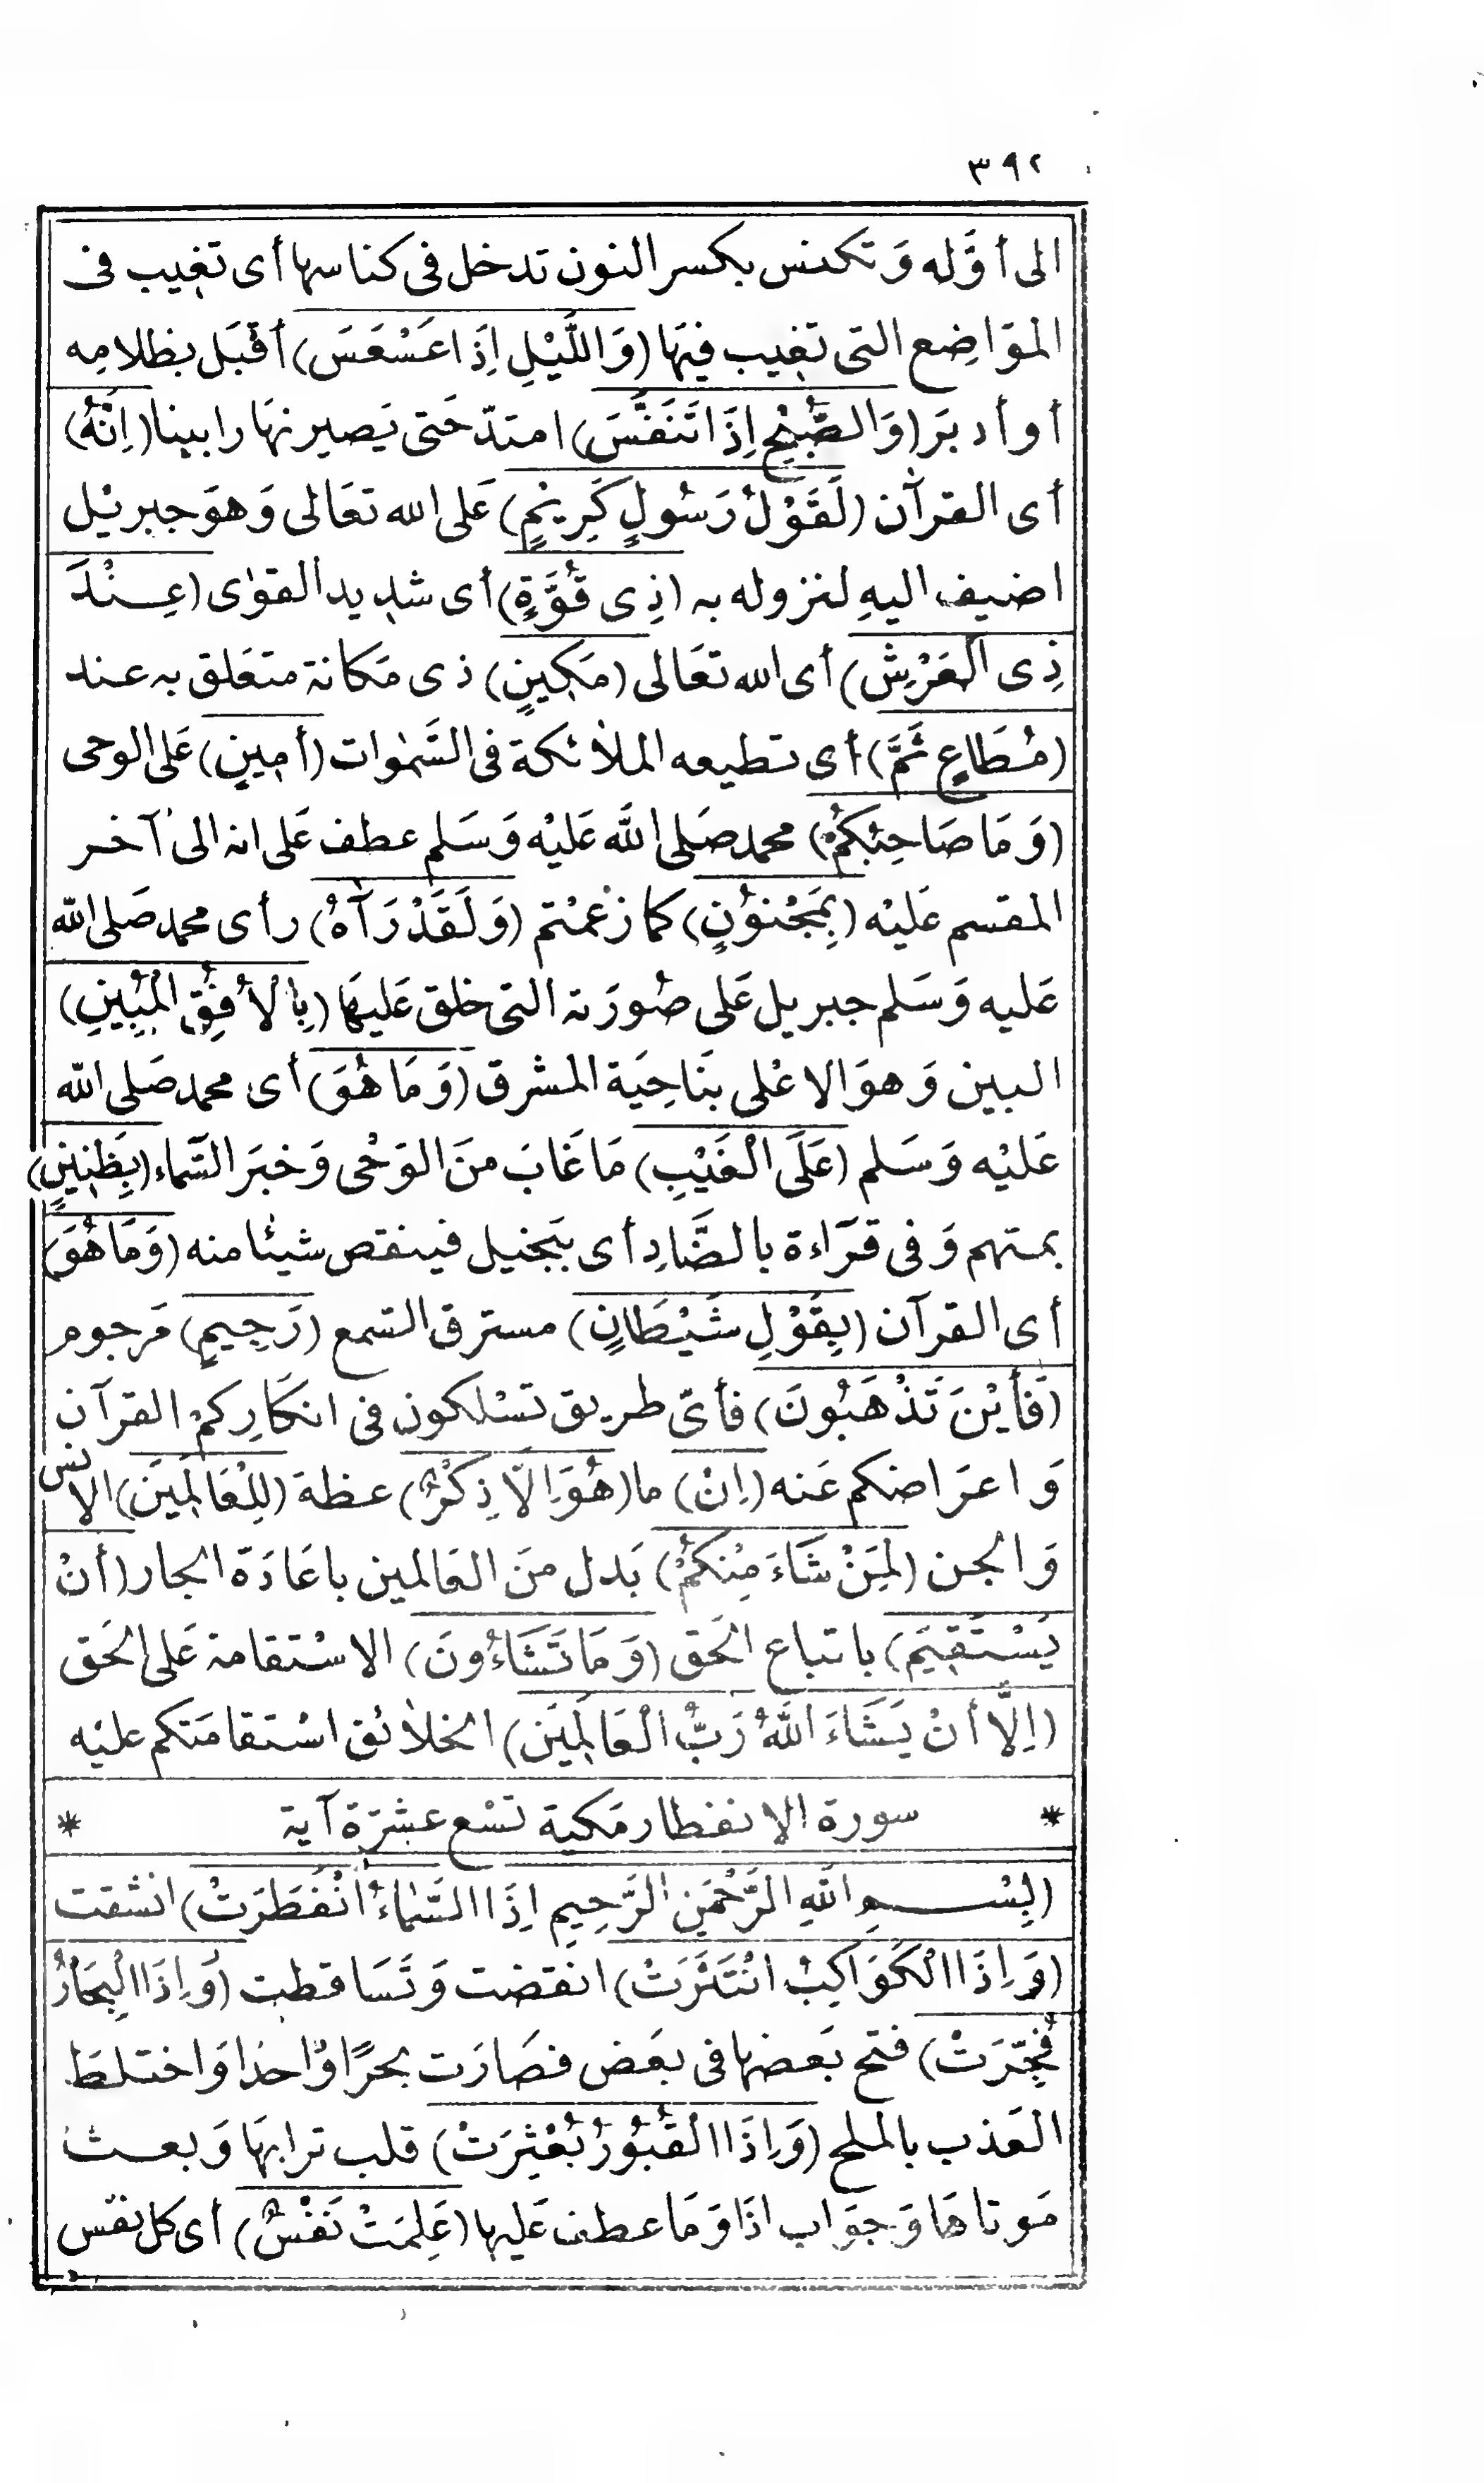 ٣٩٢
الى أوَّله وَتكنس بكسر النون تدخل فى كناسها أى تغيب فى
الموَاضِع التى تغيب فيهَا (وَاللَّيْلِ اِذَا عَسْعَسَ) أقبَل بظلامِه
أو أدبَر (وَالصُّبْحِ اِذَا تَنَفَّسَ) امتدّ حَتى يَصير نهَارا بينا (اِنَّهُ)
أى القرآن (لَقَوْلُ رَسُولٍ كَرِيْمٍ) عَلى الله تعَالى وَهوَ جبريْل
اضيف اليهِ لنزوله به (ذِى قُوَّةٍ) أى شديد القوٰى (عِنْدَ
ذِى الْعَرْشِ) أى الله تعَالى (مَكِينٍ) ذى مَكانة متعَلق به عند
(مُطَاعٍ ثَمَّ) أى تطيعه الملائكة فى السَّمٰوات (أمِينٍ) عَلى الوحى
(وَمَا صَاحِبُكُمْ) محمد صَلى الله عَليْه وَسَلم عطف عَلى انه الى آخر
المقسم عَليْه (بِمَجْنُوْنٍ) كما زعمْتم (وَلَقَدْ رَآهُ) رأى محمد صَلى الله
عَليه وَسَلم جبريل عَلى صُورَته التى خلق عَليهَا (بِالْأُفُقِ الْمُبِينِ)
البين وَهوَ الاعْلى بنَاحِيَة المشرق (وَمَا هُوَ) أى محمد صَلى الله
عَليْه وَسَلم (عَلَى الْغَيْبِ) مَا غَابَ منَ الوَحْى وَخبَر السَّماء (بِظَنِينٍ)
بمتهم وَفى قرَاءة بالضَّادِ أى ببَخيل فينقص شيئا منه (وَمَا هُوَ)
أى القرآن (بِقَوْلِ شَيْطَانٍ) مسترق السَّمع (رَجِيمٍ) مَرجوم
(فَأَيْنَ تَذْهَبُونَ) فأىّ طريق تسْلكون فى انكَارِكمْ القرآن
وَاعرَاضكم عَنه (اِنْ) ما (هُوَ اِلَّا ذِكْرٌ) عظة (لِلْعَالَمِيَن) الانس
وَالجن (لِمَنْ شَاءَ مِنْكُمْ) بَدل منَ العَالمين باعَادَة الجار (أنْ
يَسْتَقِيَم) باتباع الحَق (وَمَا تَشَاءُونَ) الاسْتقامة عَلى الحَق
(اِلَّا أنْ يَشَاءَ اللَّهُ رَبُّ الْعَالَمِيَن) الخلائق اسْتقامَتكم عليْه
* سورة الانفطار مَكية تسْع عشرَة آية *
(بِسْمِ اللهِ الرَّحْمٰنِ الرَّحِيمِ اِذَا السَّمَاءُ انْفَطَرَتْ) انشقت
(وَاِذَا الْكَوَاكِبُ انْتَثَرَتْ) انقضت وَتَسَاقطت (وَاِذَا الْبِحَارُ
فُجِّرَتْ) فتح بَعضها فى بعَض فصَارَت بحرًا وّاحدا وَاختلط
العَذب بالملح (وَاِذَا الْقُبُوْرُ بُعْثِرَتْ) قلب ترابهَا وَبعث
مَوتاهَا وَجوَاب اذَا وَمَا عطف عَليها (عَلِمَتْ نَفْسٌ) أى كل نفس